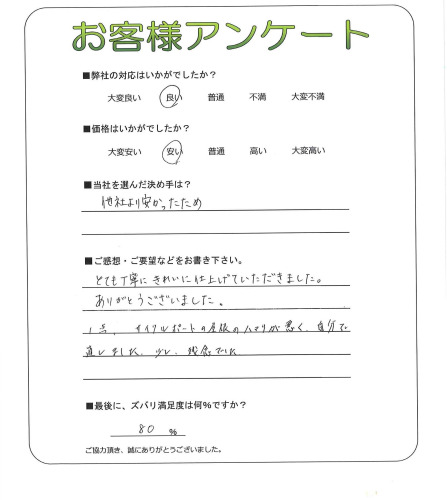 お客様アンケート
■弊社の対応はいかがでしたか?
大変良い 良い 普通 不満 大変不満
■価格はいかがでしたか?
大変安い 安い 普通 高い 大変高い
■当社を選んだ決め手は?
他社より安かったため
■ご感想・ご要望などをお書き下さい。
とても丁寧にきれいに仕上げていただきました。
ありがとうございました。
1点、サイクルポートの屋根のハマリが悪く、自分で
直しました。少し、残念でした
■最後に、ズバリ満足度は何%ですか?
80 %
ご協力頂き、誠にありがとうございました。